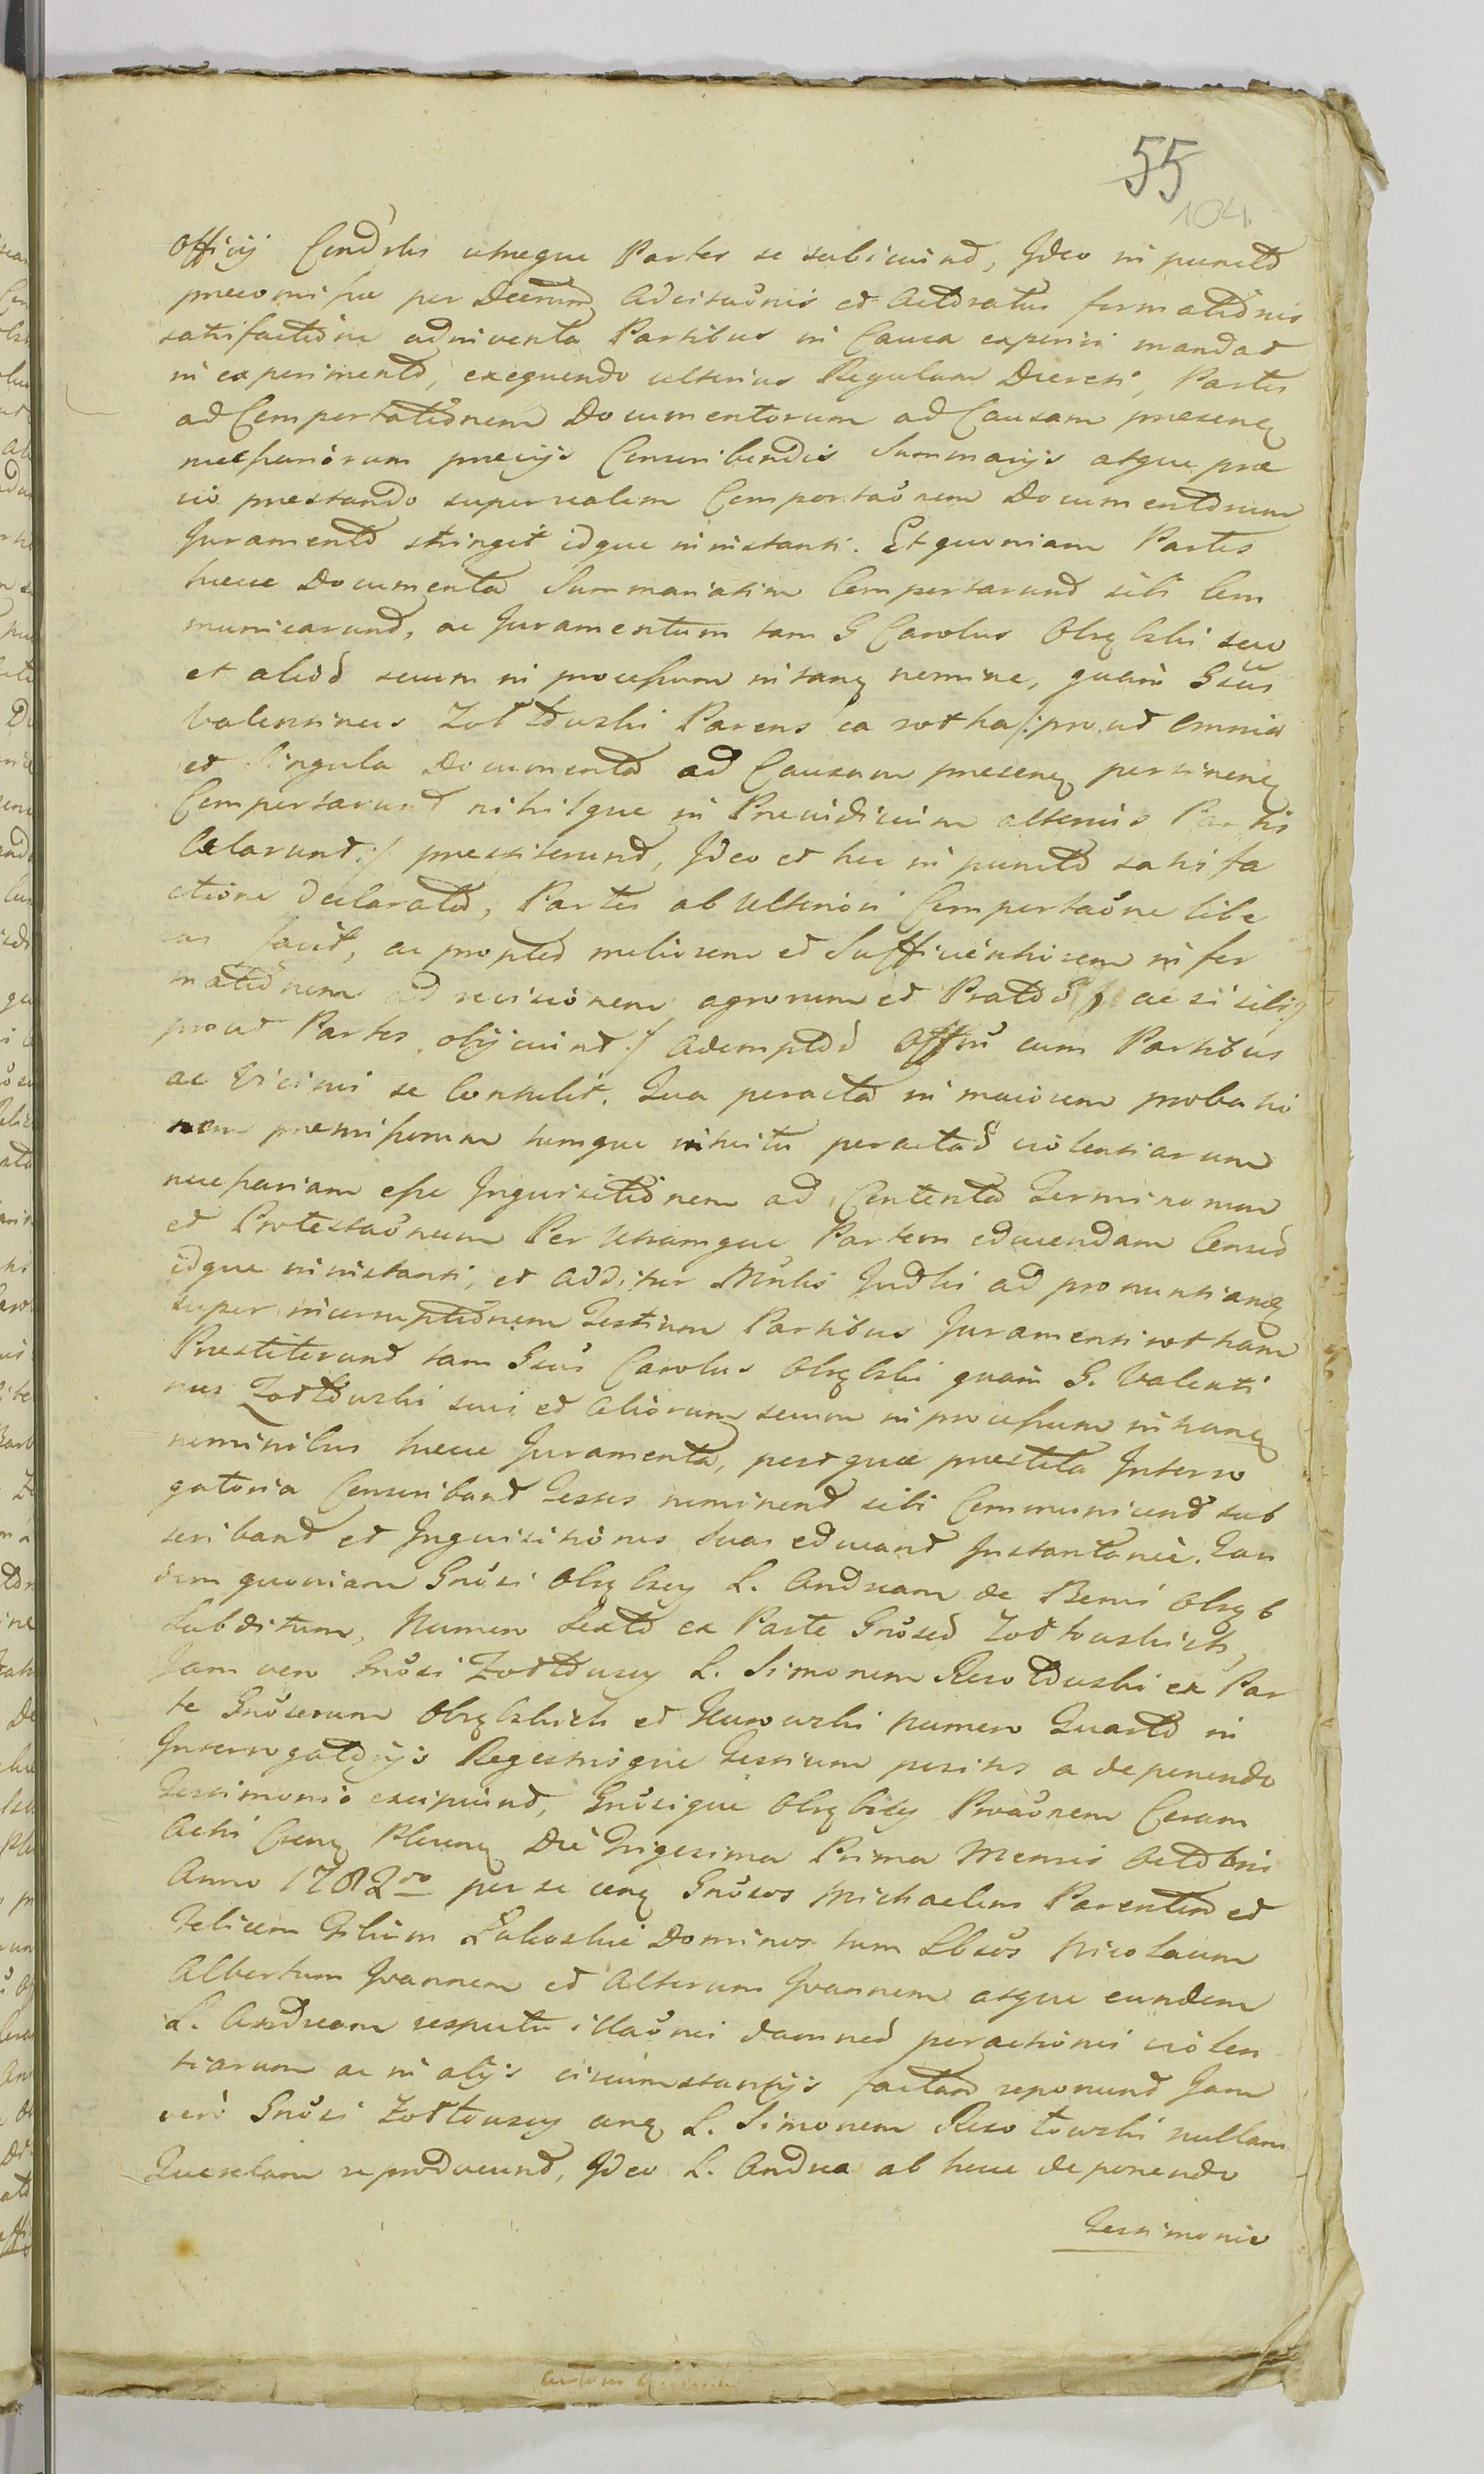 55
104.
Officij Condrlis utreque Partes se subiiciunt, Ideo in puncto
premissae per Decretum Adcitaõnis et Actoratus formationis
satisfactione adinventa Partibus in Causa experiri mandat
in experimento, exequendo ulterius Regulam Decreti, Partes
ad Comportationem Documentorum ad Causam presenq
necessariorum previjs Conscribendis Summarijs atque prae
vio prestando super realem Comportaõnem Documentorum
Juramento stringit idque in instanti. Et quoniam Partes
hucce Documenta Summariatim Comportarunt sibi Com
municarunt, ac Juramentum tam G Carolus Obrębski suo
et aliorum secum in processum intranq nomine, quam Gsus
Valentinus Żołtowski Parens ea rotha /: prout omnia
et Singula Documenta ad Causam presenq pertinenq
Comportarunt nihilque in Preiudicium alterius Partis
Celarunt :/ prestiterunt, Ideo et hoc in puncto satisfa
ctione declarata, Partes ab ulteriori Comportaõne libe
ras facit, ac propter meliorem et Sufficientiorem infor
mationem ad revisionem agrorum et Prator ac si sibi /
prout Partes obijciunt :/ Ademptor Offiũ cum Partibus
ac Vicinis se Contulit. Qua peracta in maiorem probatio
nem premissorum tumque intuitu peractar violentiarum
necessariam esse Inquisitionem ad Contenta Terminorum
et Protestaõnum Per Utramque Partem educendam Censet
idque in instanti, et additur Mnlis Judlis ad pronuntianq
super incorruptionem Testium Partibus Juramenti rotham
Prestiterunt tam Gsus Carolus Obrębski quam G. Valenti
nus Żołtowski sui et Aliorum secum in processum intranq
nominibus hucce Juramenta, postque prestita Interro
gatoria Conscribant Testes nominent sibi Communicent sub
scribant et Inquisitiones suas educant Instantanee. Tan
dem quoniam Gnõsi Obrębscy L. Andream de Bonis Obręb
Subditum, Numero Sexto ex Parte Gnõsor Żołtowskich,
Jam vero Gnõsi Żołtowscy L. Simonem Rzosotowski ex Par
te Gnõsorum Obrębskich et Kurowski Numero Quarto in
Interrogatorijs Regestrisque Testium positos a deponendo
Testimonio excipiunt, Gnõsique Obrębscy Proaõnem Coram
Actis Crenq Plocenq Die Trigesima Prima Mensis Octobris
Anno 1782do per se cenq Gnõsos Michaelem Parentem et
Felicem Filium Łukoskie Dominos tum Lbsos Nicolaum
Albertum Joannem et Alterum Joannem atque eundem
L. Andream respectu illaõnis damnor peractionis violen
tiarum ac in alijs circumstantijs factam reponunt Jam
vero Gnõsi Żołtowscy cenq L. Simonem Rzosotowski nullam
Querelam reproducunt, Ideo L. Andrea ab hucce deponendo
Testimonio